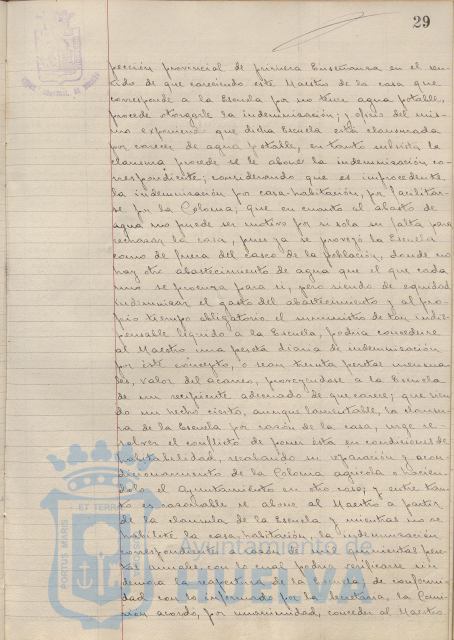 29
pección provincial de primera Enseñanza en el sen-
tido de que careciendo este Maestro de la casa que
corresponde a la Escuela por no tener agua potable,
procede otorgarle la indemnización; y oficio del mis-
mo exponiendo que dicha Escuela está clausurada
por carecer de agua potable, en tanto subsista la
clausura procede se le abone la indemnización co-
rrespondiente; considerando que es improcedente
la indemnización por casa-habitación, por facilitar-
se por la Colonia; que en cuanto al abasto de
agua no puede ser motivo por si sola su falta para
rechazar la casa, pues ya se proveyó la Escuela
como de fuera del casco de la población, donde no
hay otro abastecimiento de agua que el que cada
uno se procura para si, pero siendo de equidad
indemnizar el gasto del abastecimiento y al pro-
pio tiempo obligatorio el suministro de tan indis-
pensable líquido a la Escuela, podria concederse
al Maestro una peseta diaria de indemnización
por este concepto, o sean treinta pesetas mensua-
les, valor del acarreo, proveyendose a la Escuela
de un recipiente adecuado de que carece; que sien-
do un hecho cierto, aunque lamentable, la clausu-
ra de la Escuela por razón de la casa, urge re-
solver el conflicto de poner ésta en condiciones de
habitabilidad, recabando su reparación y acon-
dicionamiento de la Colonia agricola o hacien-
dolo el Ayuntamiento en otro caso; y entre tan-
to es razonable se abone al Maestro a partir
de la clausula de la Escuela y mientras no se
habilite la casa habitación, la indemnización
correspondiente a razón de mil pese-
tas anuales, con lo cual podria verificarse sin
demora la reapertura de la Escuela; de conformi-
dad con lo informado por la Secretaria, la Comi-
sión acordó, por unanimidad, conceder al Maestro
PORTUS MARIS ET TERRAE
Ayuntamiento de